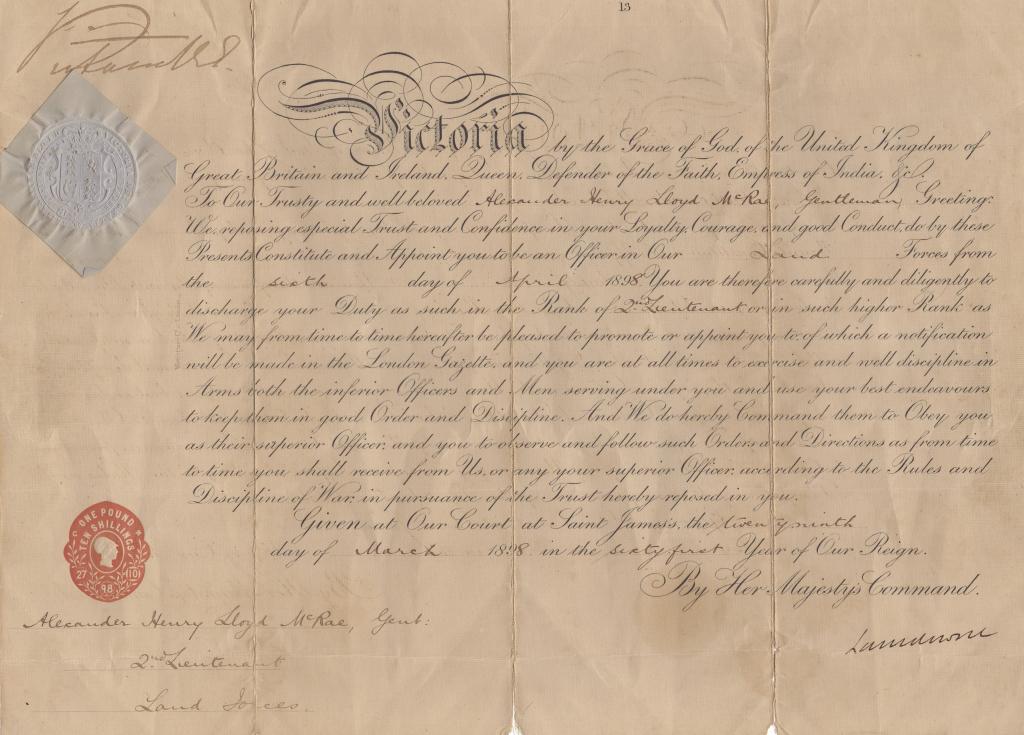 13
Victoria R I
Victoria by the Grace of God, of the United Kingdom of
Great Britain and Ireland, Queen, Defender of the Faith, Empress of India, &c.
To Our Trusty and well beloved Alexander Henry Lloyd McRae, Gentleman, Greeting:
We, reposing especial Trust and Confidence in your Loyalty, Courage, and good Conduct, do by these
Presents Constitute and Appoint you to be an Officer in Our Land Forces from
the sixth day of April 1898. You are therefore carefully and diligently to
discharge your Duty as such in the Rank of 2nd Lieutenant or in such higher Rank as
We may from time to time hereafter be pleased to promote or appoint you to, of which a notification
will be made in the London Gazette, and you are at all times to exercise and well discipline in
Arms both the inferior Officers and Men serving under you and use your best endeavours
to keep them in good Order and Discipline. And We do hereby Command them to Obey you
as their superior Officer, and you to observe and follow such Orders and Directions as from time
to time you shall receive from Us, or any your superior Officer, according to the Rules and
Discipline of War, in pursuance of the Trust hereby reposed in you.
Given at Our Court at Saint James's, the twenty ninth
day of March 1898 in the sixty first Year of Our Reign.
By Her Majesty's Command.
Lansdowne
ONE POUND
TEN SHILLINGS
27 10
98
Alexander Henry Lloyd McRae, Gent:
2nd Lieutenant
Land Forces.